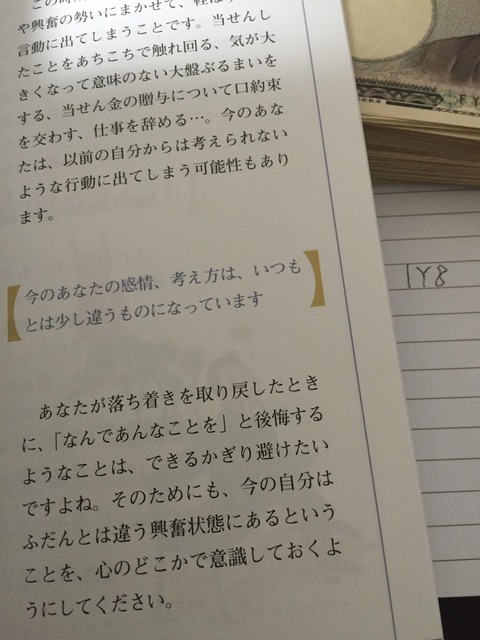 や興奮の勢いにまかせて、軽はず
言動に出てしまうことです。当せんし
たことをあちこちで触れ回る、気が大
きくなって意味のない大盤ぶるまいを
する、当せん金の贈与について口約束
を交わす、仕事を辞める…。今のあな
たは、以前の自分からは考えられない
ような行動に出てしまう可能性もあり
ます。
今のあなたの感情、考え方は、いつも
とは少し違うものになっています
あなたが落ち着きを取り戻したとき
に、「なんであんなことを」と後悔する
ようなことは、できるかぎり避けたい
ですよね。そのためにも、今の自分は
ふだんとは違う興奮状態にあるという
ことを、心のどこかで意識しておくよ
うにしてください。
FY
1Y8